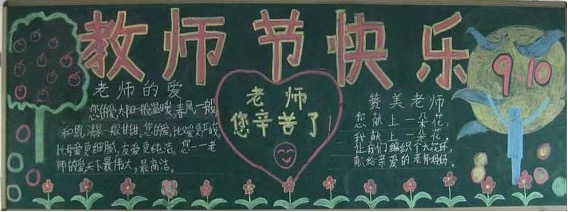 教师节快乐
9.10
老师的爱
您的爱,太阳一般温暖,春风一般
和煦,清泉一般甘甜,您的爱,比父爱严峻,
比母爱更细腻,友爱更纯洁。您一老
师的爱天下最伟大,最高洁。
老师
您辛苦了!
赞美老师
您献上一朵花
我献上一朵花,
让我们编织个大花环,
献给亲爱的老师妈妈